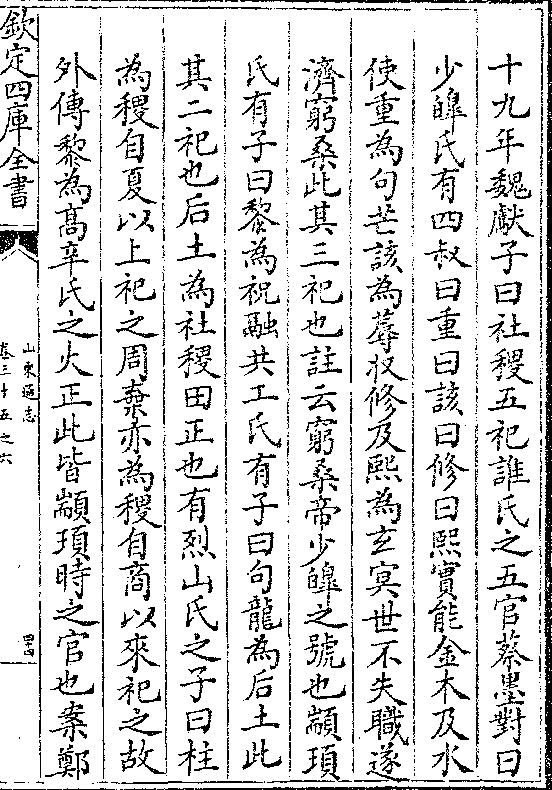 十九年魏獻子曰社稷五祀誰氏之五官蔡墨對曰
少皥氏有四叔曰重曰該曰修曰熙實能金木及水
使重為句芒該為蓐收修及熙為玄冥世不失職遂
濟窮桑此其三祀也註云窮桑帝少皥之號也顓頊
氏有子曰黎為祝融共工氏有子曰句龍為后土此
其二祀也后土為社稷田正也有烈山氏之子曰柱
為稷自夏以上祀之周棄亦為稷自商以來祀之故
外傳黎為高辛氏之火正此皆顓頊時之官也案鄭
欽定四庫全書
山東通志
卷三十五之六
四十四